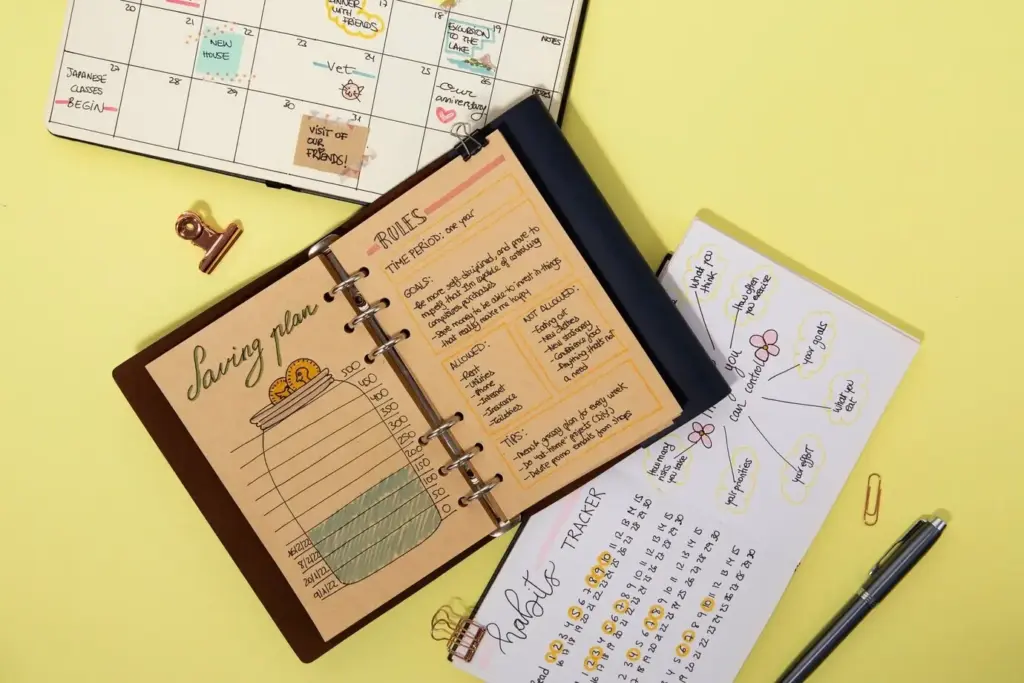 20
21
22
23
24
17
18
19
NOTES
DINNER
WITH
FRIENDS
EXCURSION
TO THE
LAKE
NEW
HOUSE
27
28
29
30
31
25
26
NOTES
JAPANESE
CLASSES
BEGIN
Vet
anniversary
VISIT OF
OUR
FRIENDS!
Saving plan
500
400
350
300
250
200
150
100
50
0
8/2/22
20/1/22
9/1/22
RULES
TIME PERIOD: one year
GOALS:
-Be more self-disciplined, and prove to
myself that I'm capable of controlling
compulsive purchases
-Save money to be able to invest in things
that really make me happy
ALLOWED:
-Rent
-Utilities
-Phone
-Internet
-Insurance
-Toiletries
NOT ALLOWED:
-Eating out
-New clothes
-New stationary
-Convenience food
-Anything that's not
a need
TIPS:
grocery plan for every week
projects (DIY)
-Delete promo emails from shops
What you
think
How often
you exercise
your goals
What you
eat
your effort
your priorities
How many
risks
you take
you
can control
habits TRACKER
Read
1 2 3 4 5 6 7 8 9 10 11 12 13 14 15
16 17 18 19 20 21 22 23 24 25 26 27 28 29 30
1 2 3 4 5 6 7 8 9 10 11 12 13 14 15
16 17 18 19 20 21 22 23 24 25 26 27 28 29 30